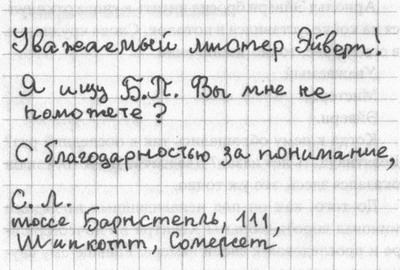 Уважаемый мистер Эйверт!
Я ищу Б.П. Вы мне не
поможете?
С благодарностью за понимание,
С. Л.
шоссе Барнстепль, 111,
Шипкотт, Сомерсет